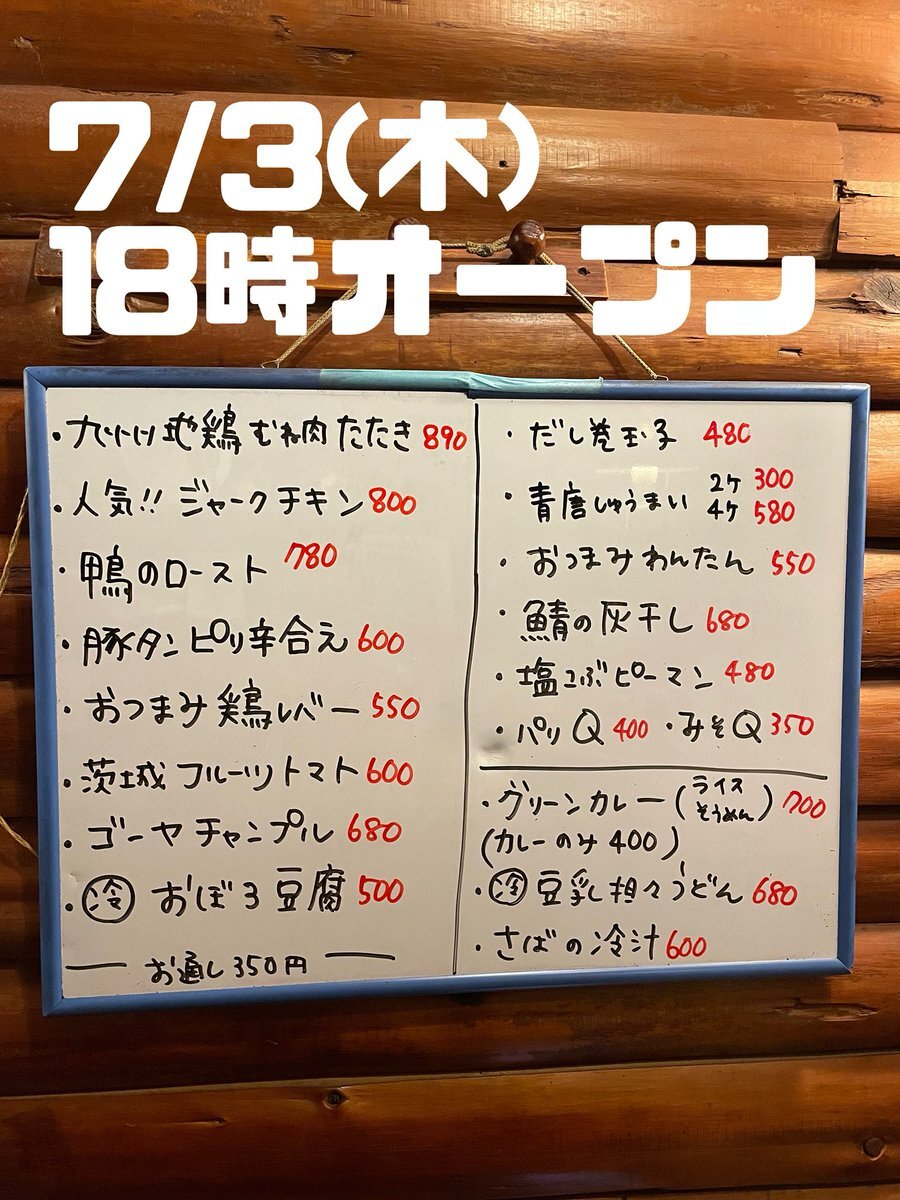 7/3(木)
18時オープン
・九州地鶏むね肉たたき 890
・人気!! ジャークチキン 800
・鴨のロースト 780
・豚タンピリ辛合え 600
・おつまみ鶏レバー 550
・茨城フルーツトマト 600
・ゴーヤチャンプル 680
・㊀冷 おぼろ豆腐 500
お通し350円
・だし巻玉子 480
・青唐しゅうまい 2ケ 300
4ケ 580
・おつまみわんたん 550
・鯖の灰干し 680
・塩こぶピーマン 480
・パリQ 400 ・みそQ 350
・グリーンカレー(ライス そうめん) 700
(カレーのみ 400)
・冷 豆乳担々うどん 680
・さばの冷汁 600